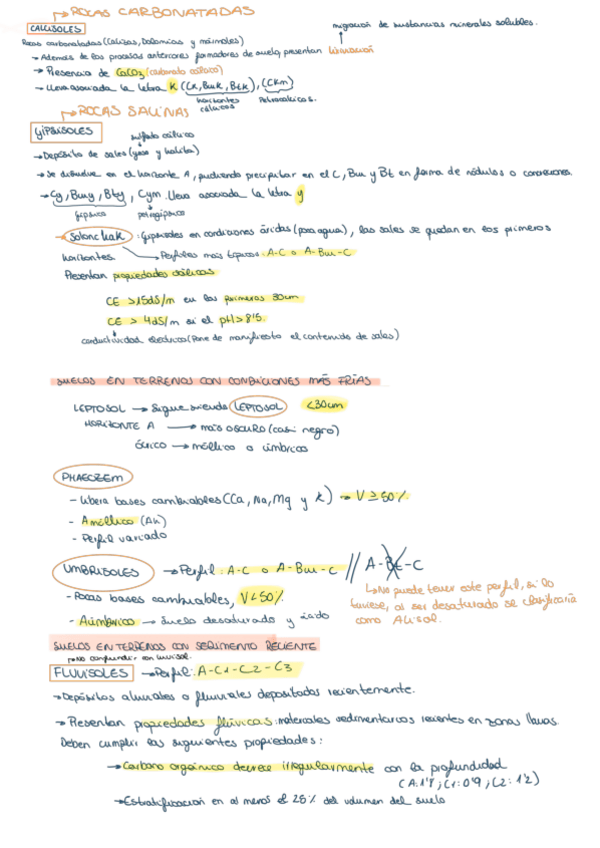 → ROCAS CARBONATADAS
CALCISOLES
migración de sustancias minerales solubles.
Rocas carbonatadas (Calizas, Dolomías y mármoles)
→ Además de los procesos anteriores formadores de suelo, presentan lixiviación
→ Presencia de CaCO3 (carbonato cálcico)
→ Lleva asociada la letra K (Ck, Bwk, Btk), (Ckm)
horizontes cálcicos Petrocálcicos.
→ ROCAS SALINAS
GIPSISOLES
sulfato cálcico
→ Depósito de sales (yeso y halita)
→ Se disuelve en el horizonte A, pudiendo precipitar en el C, Bw y Bt en forma de nódulos o concreciones.
→ Cy, Bwy, Bty, Cym. Lleva asociada la letra y
gípsico petrogípsico
→ Solonchak: Gipsisoles en condiciones áridas (poca agua), las sales se quedan en los primeros
horizontes → Perfiles más típicos: A-C o A-Bw-C
Presentan propiedades sálicas
CE >15dS/m en los primeros 30cm
CE > 4dS/m si el pH > 8'5.
conductividad eléctrica (Pone de manifiesto el contenido de sales)
SUELOS EN TERRENOS CON CONDICIONES MÁS FRÍAS
LEPTOSOL → Sigue siendo LEPTOSOL <30cm
HORIZONTE A → más oscuro (casi negro)
→ móllico o úmbrico
PHAEOZEM
- Libera bases cambiables (Ca, Na, Mg y K) → V ≥ 50%
- Amóllico (Ah)
- Perfil variado
UMBRISOLES → Perfil: A-C o A-Bw-C // A-Bt-C
- Pocas bases cambiables, V<50%
- Aúmbrico → Suelo desaturado y ácido
↳ No puede tener este perfil, si lo
tuviese, al ser desaturado se clasificaría
como Alisol.
SUELOS EN TERRENOS CON SEDIMENTO RECIENTE
→ No confundir con luvisol.
FLUVISOLES → Perfil: A-C1-C2-C3
→ Depósitos aluviales o fluviales depositados recientemente.
→ Presentan propiedades flúvicas: materiales sedimentarios recientes en zonas llanas.
Deben cumplir las siguientes propiedades:
→ Carbono orgánico decrece irregularmente con la profundidad
(A:1'7; C1:0'9; C2:1'2)
→ Estratificación en al menos el 25% del volumen del suelo